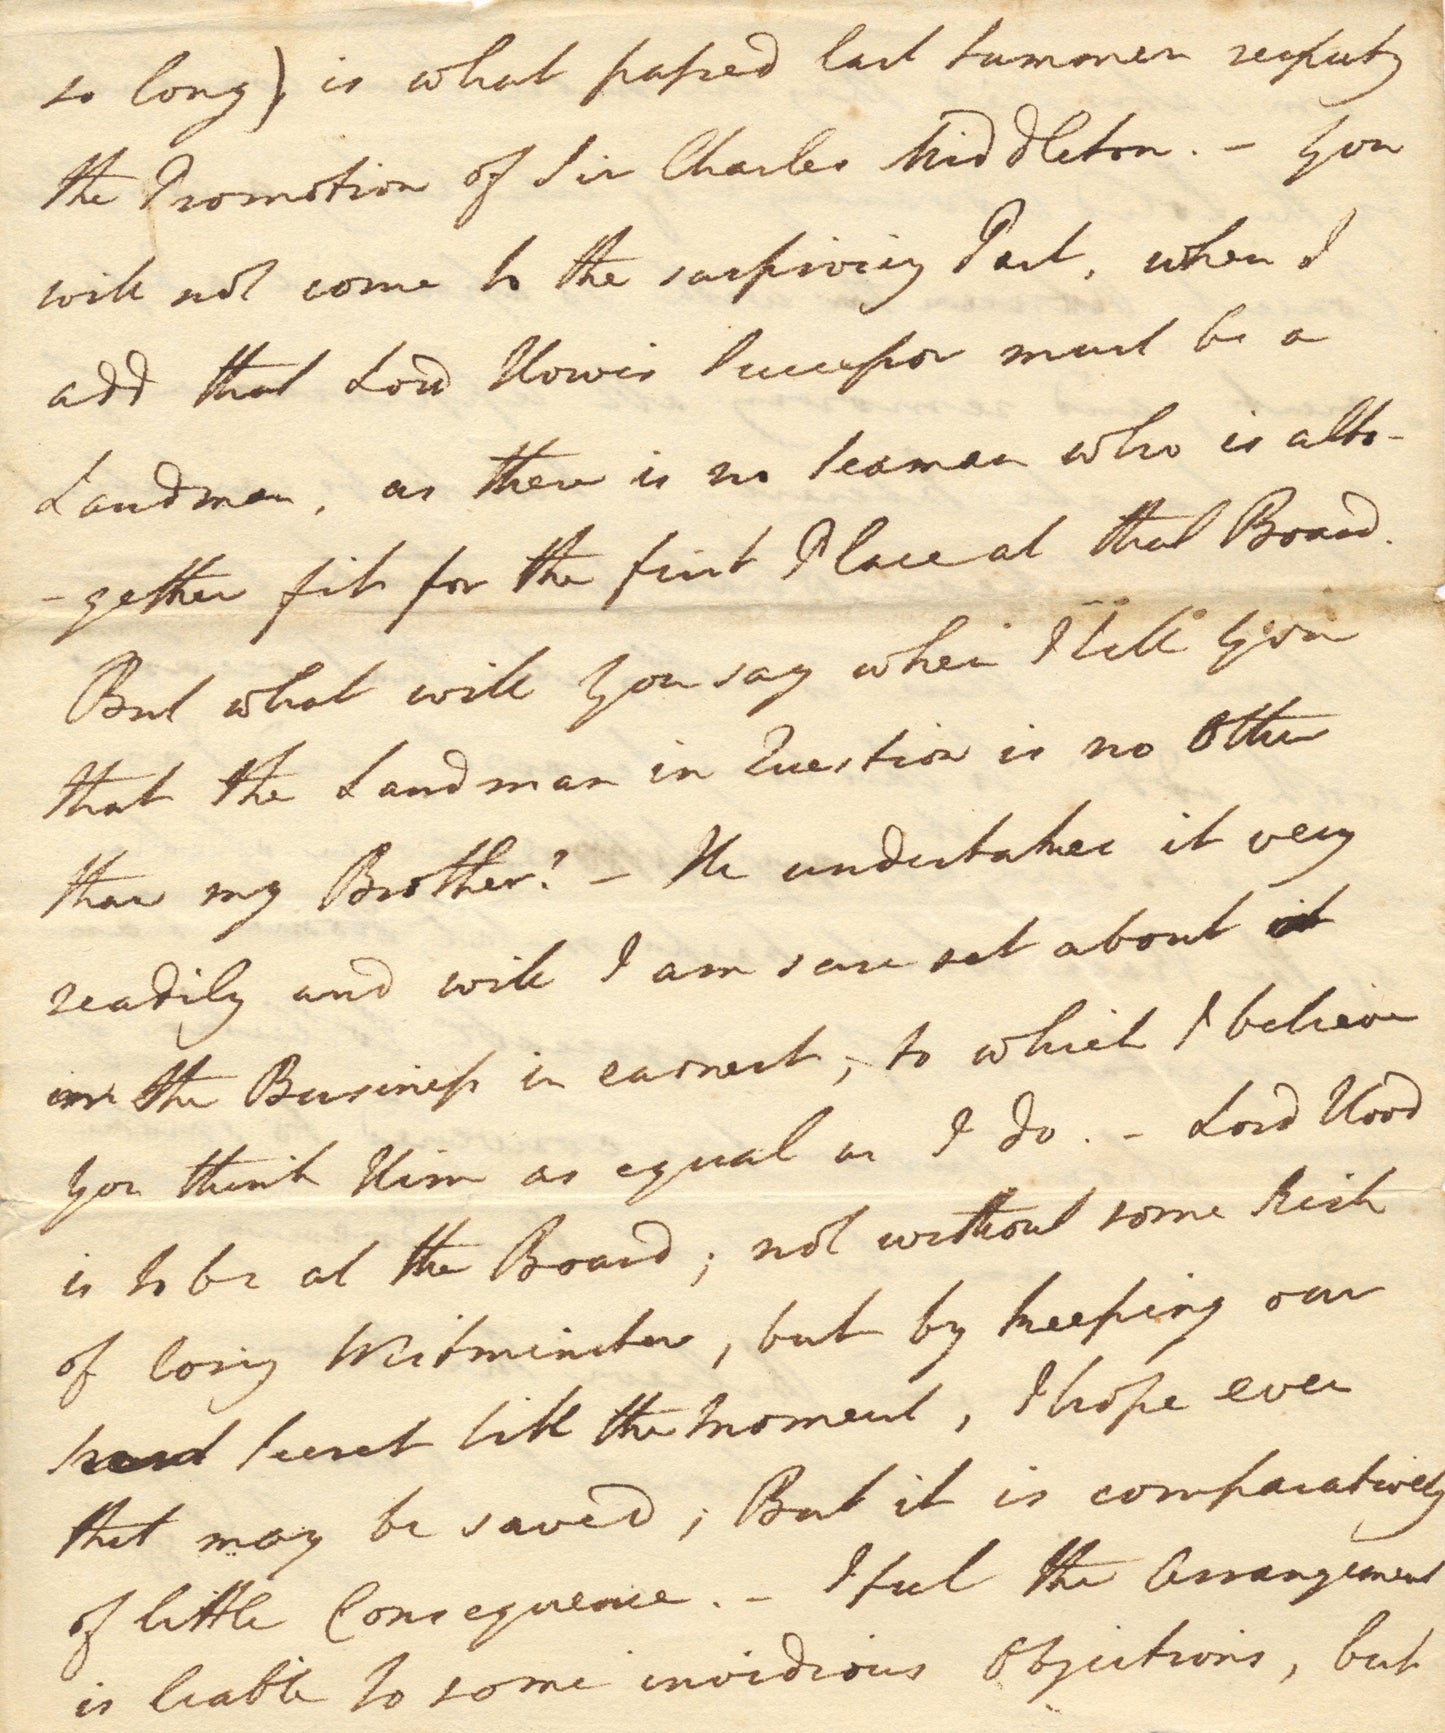 so long) is what passed last Summer respecting
the Promotion of Sir Charles Middleton. – You
will not come to the surprising Part, when I
add that Lord Howe's Successor must be a
Landman, as there is no Seaman who is alto-
-gether fit for the first Place at that Board.
But what will you say when I tell you
that the Landman in Question is no Other
than my Brother? – He undertakes it very
readily and will I am sure set about it
in the Business in earnest, to which I believe
you think Him as equal as I do. – Lord Hood
is to be at the Board; not without some Risk
of losing Westminster, but by keeping our
Secret till the Moment, I hope even
that may be saved; But it is comparatively
of little Consequence. – I feel the Arrangement
is liable to some invidious Objections, but